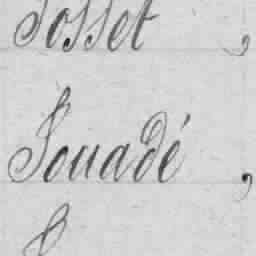 Posset ,
Souadé ,